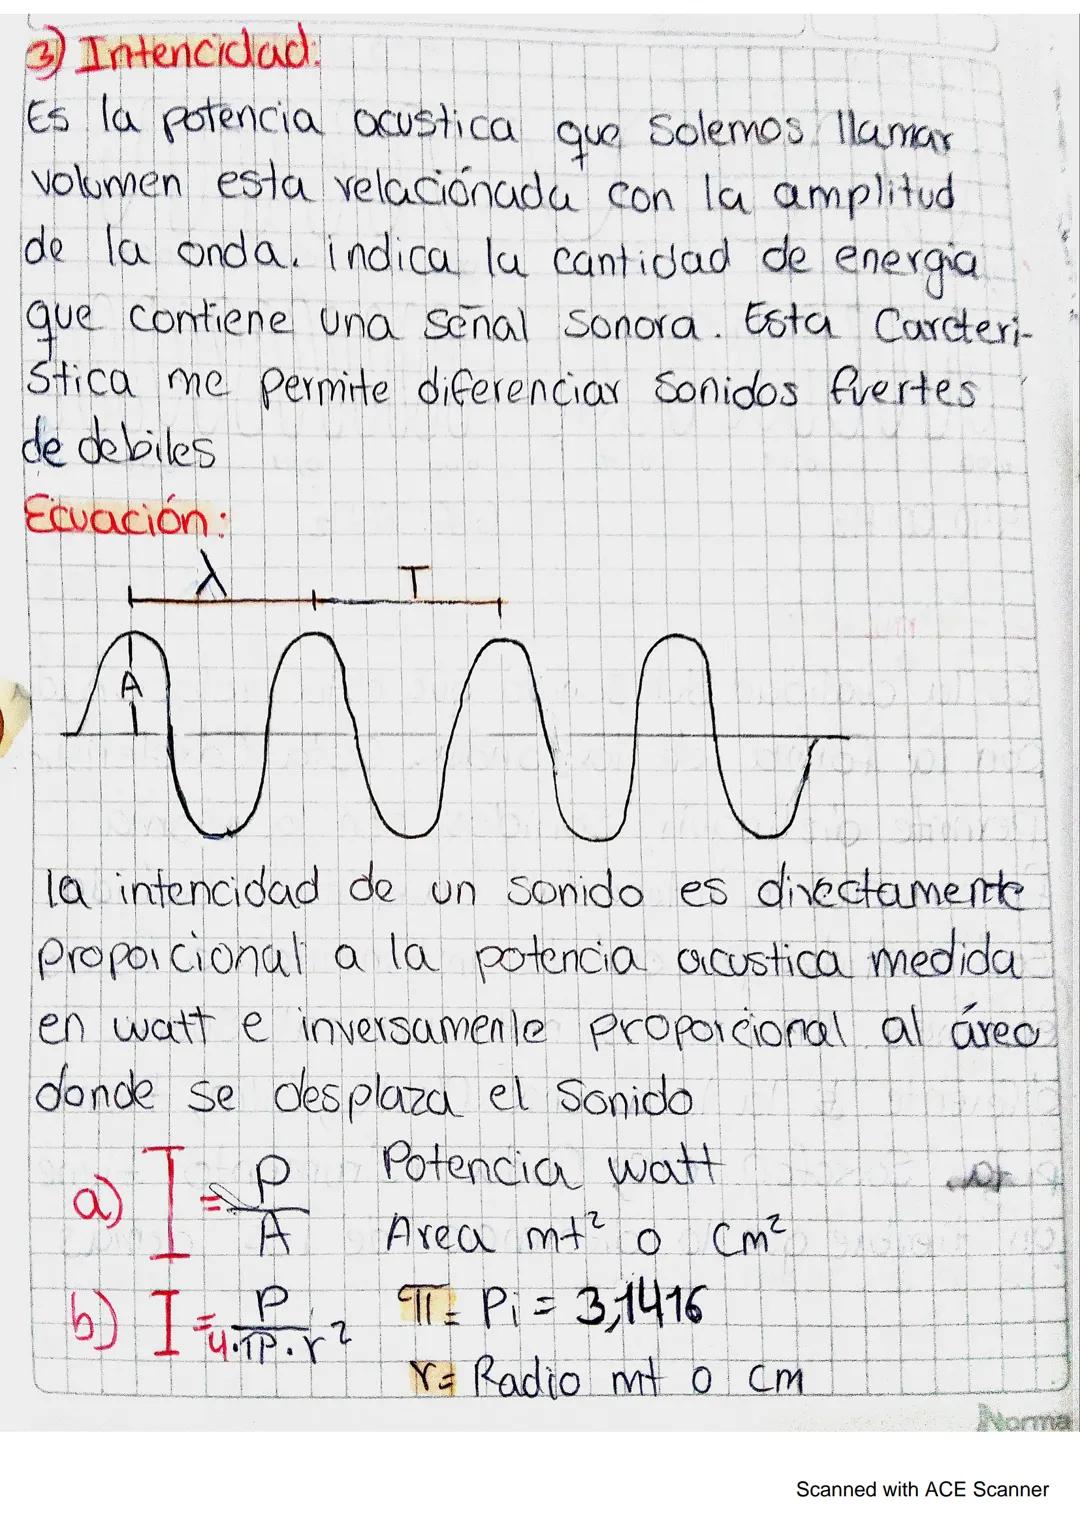 3) Intencidad:
Es la potencia acustica que solemos llamar
volumen esta relaciónada con la amplitud
de la onda. indica la cantidad de energia
que contiene una señal sonora. Esta Carcteri-
stica me permite diferenciar sonidos fuertes
de debiles
Ecuación:
λ T
A
la intencidad de un sonido es directamente
proporcional a la potencia acustica medida
en watt e inversamente proporcional al área
donde se desplaza el sonido
a) I = P/A Potencia watt
Area mt² o cm²
b) I = P/4·π·r² π = Pi = 3,1416
r = Radio mt o cm
Norma
Scanned with ACE Scanner